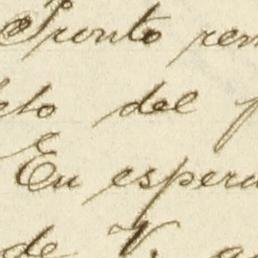 Pronto rem
elo del p
En espera
de V. a